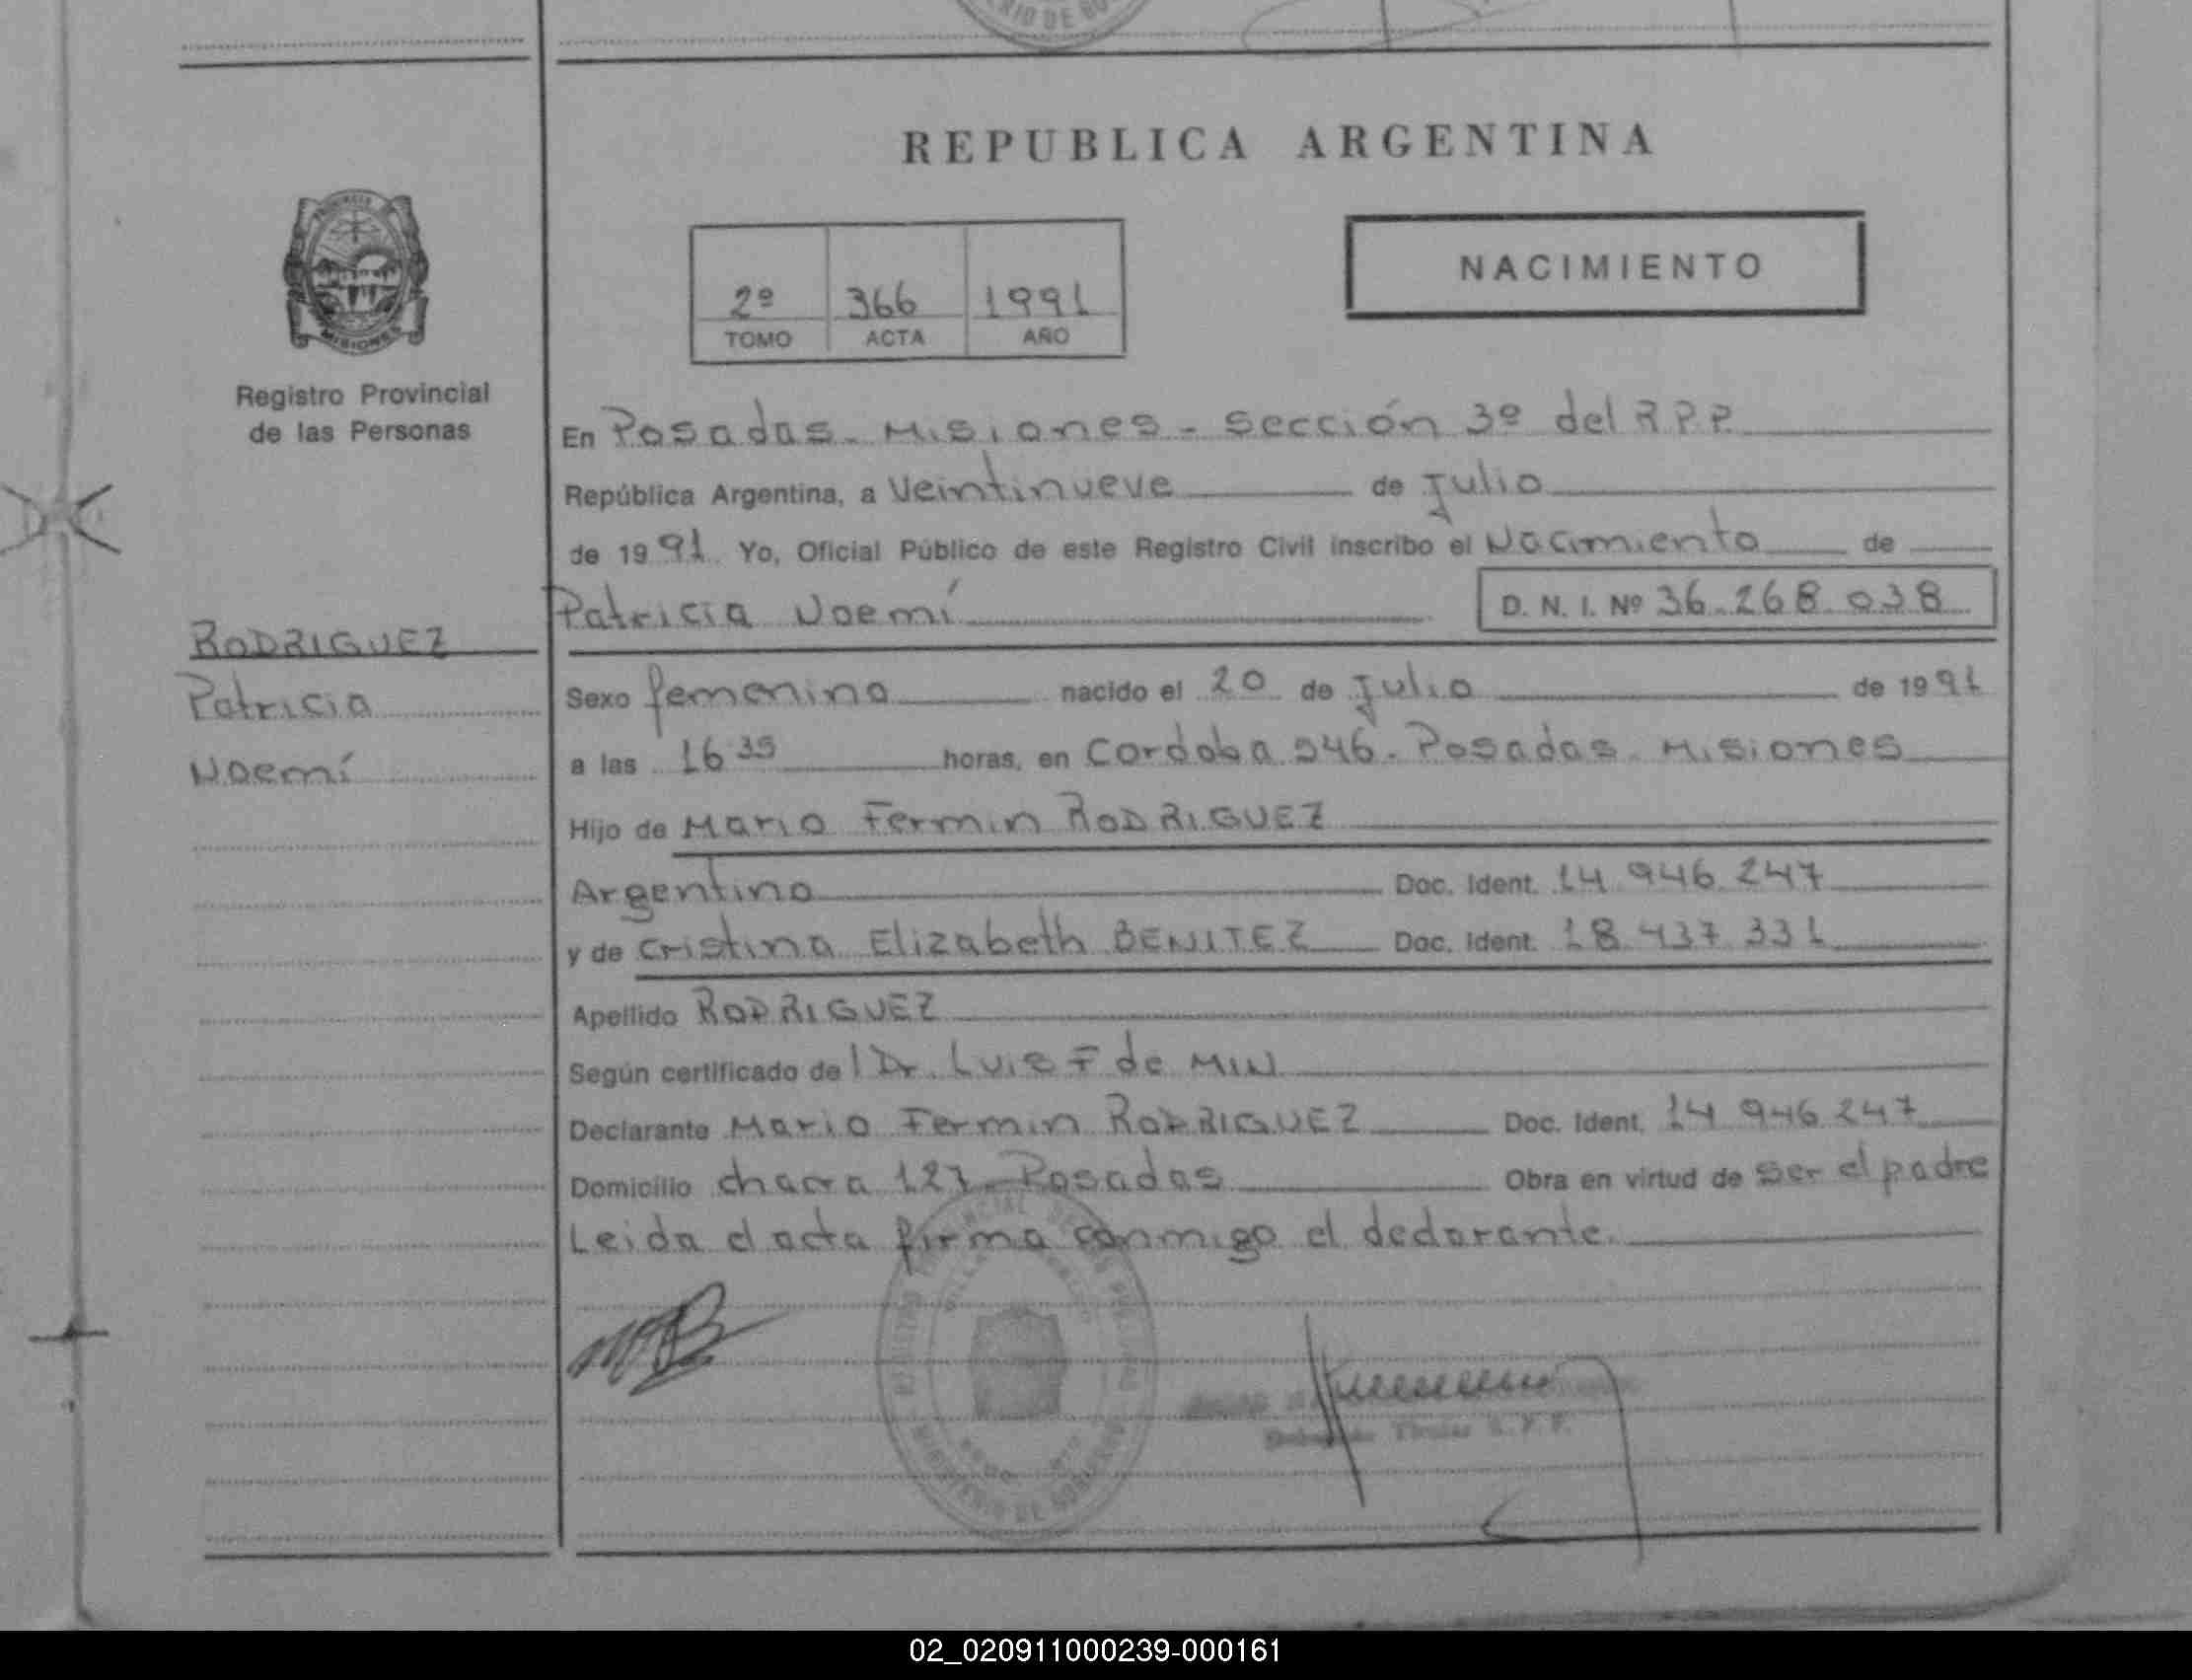 REPUBLICA ARGENTINA
NACIMIENTO
2º 366 1991
TOMO ACTA AÑO
MISIONES
Registro Provincial
de las Personas
En Posadas - Misiones - Sección 3º del R.P.P.
República Argentina, a Veintinueve de Julio
de 1991 Yo, Oficial Público de este Registro Civil inscribo el Nacimiento de
Patricia Noemí D. N. I. Nº 36.268.038
RODRIGUEZ
Patricia
Noemí
Sexo femenino nacido el 20 de Julio de 1991
a las 16 35 horas, en Cordoba 946 - Posadas - Misiones
Hijo de Mario Fermin RODRIGUEZ
Argentino Doc. Ident. 14.946.247
y de Cristina Elizabeth BENITEZ Doc. Ident. 18.437.331
Apellido RODRIGUEZ
Según certificado del Dr. Luis F de MIN
Declarante Mario Fermin RODRIGUEZ Doc. Ident. 14.946.247
Domicilio chacra 127 - Posadas Obra en virtud de ser el padre
Leida el acta firma conmigo el declarante.
MINISTERIO DE GOBIERNO
Titular
02_020911000239-000161